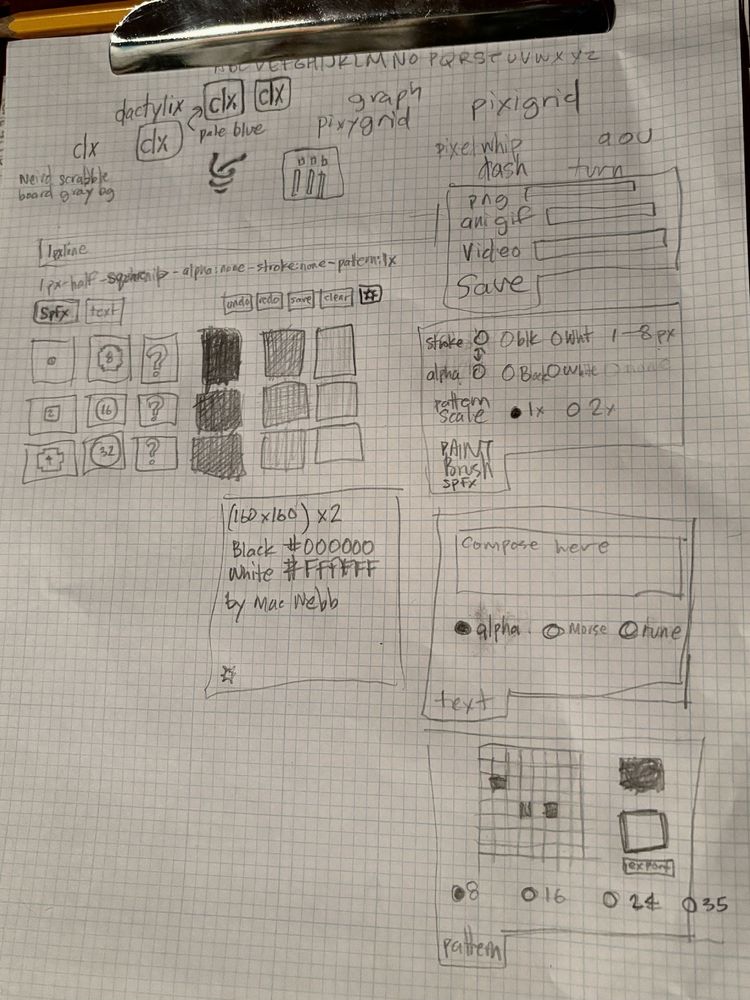 ABCDEFGHIJKLMNOPQRSTUVWXYZ
dactylix
clx
clx
clx
pale blue
clx
Weird scrabble
board gray bg
graph
pixygrid
pixigrid
pixel whip
dash
turn
png
ani gif
video
Save
1pxline
1px-half- -alpha:none-stroke:none-pattern:1x
SpFx
text
undo
redo
save
clear
8
?
2
16
?
4
32
?
stroke O O blk O Wht 1-8px
alpha O O Black O White
pattern
scale
1x O 2x
PAINT
Brush
SpFx
(160x160) x2
Black #000000
White #FFFFFF
by Mac Webb
Compose here
alpha O Morse O rune
text
export
8 O 16 O 24 O 35
pattern